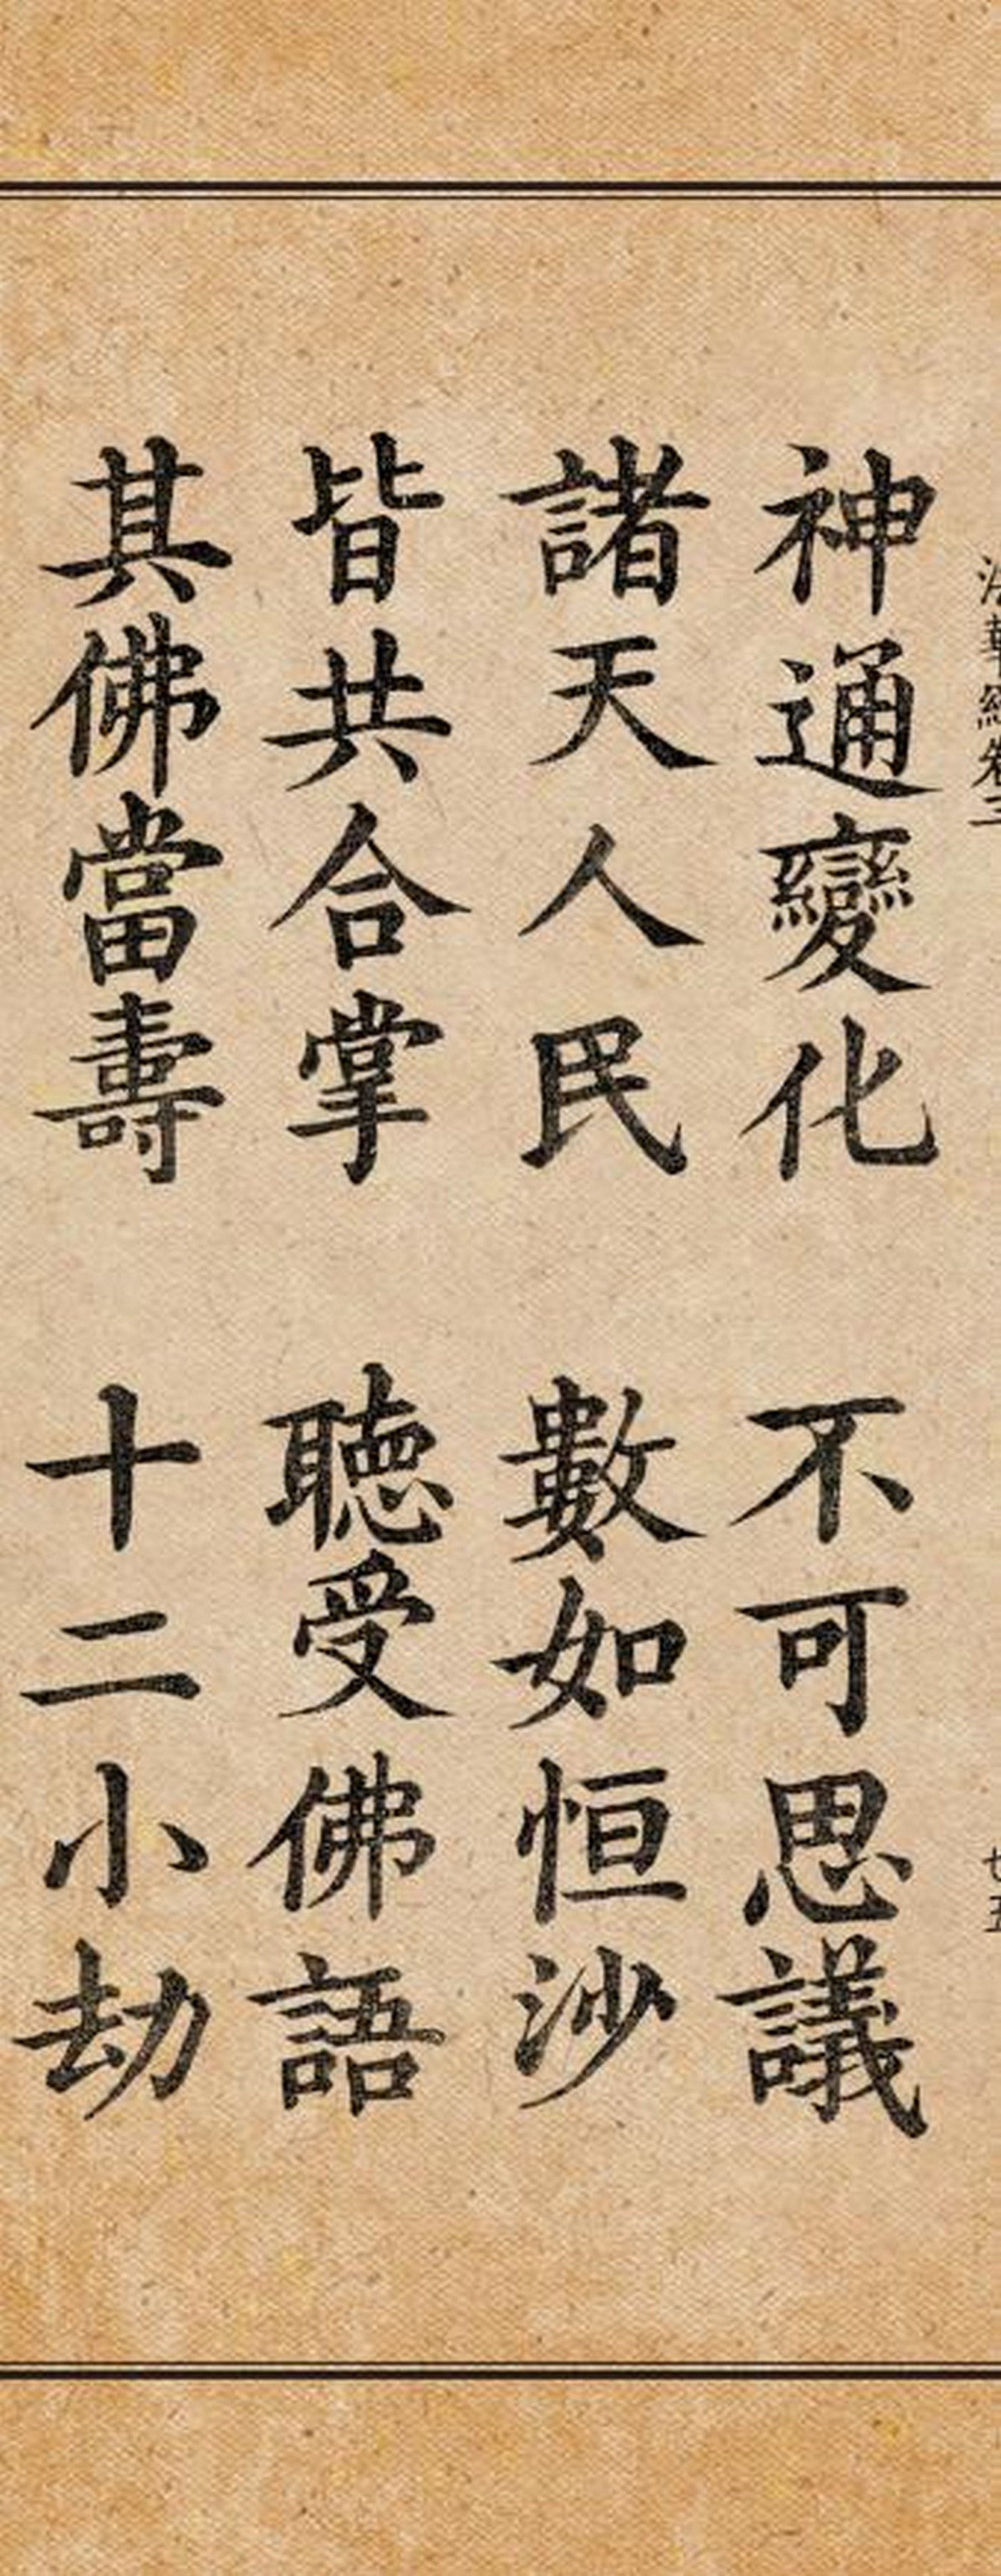 法華經卷三 廿五
神通變化 不可思議
諸天人民 數如恒沙
皆共合掌 聽受佛語
其佛當壽 十二小劫